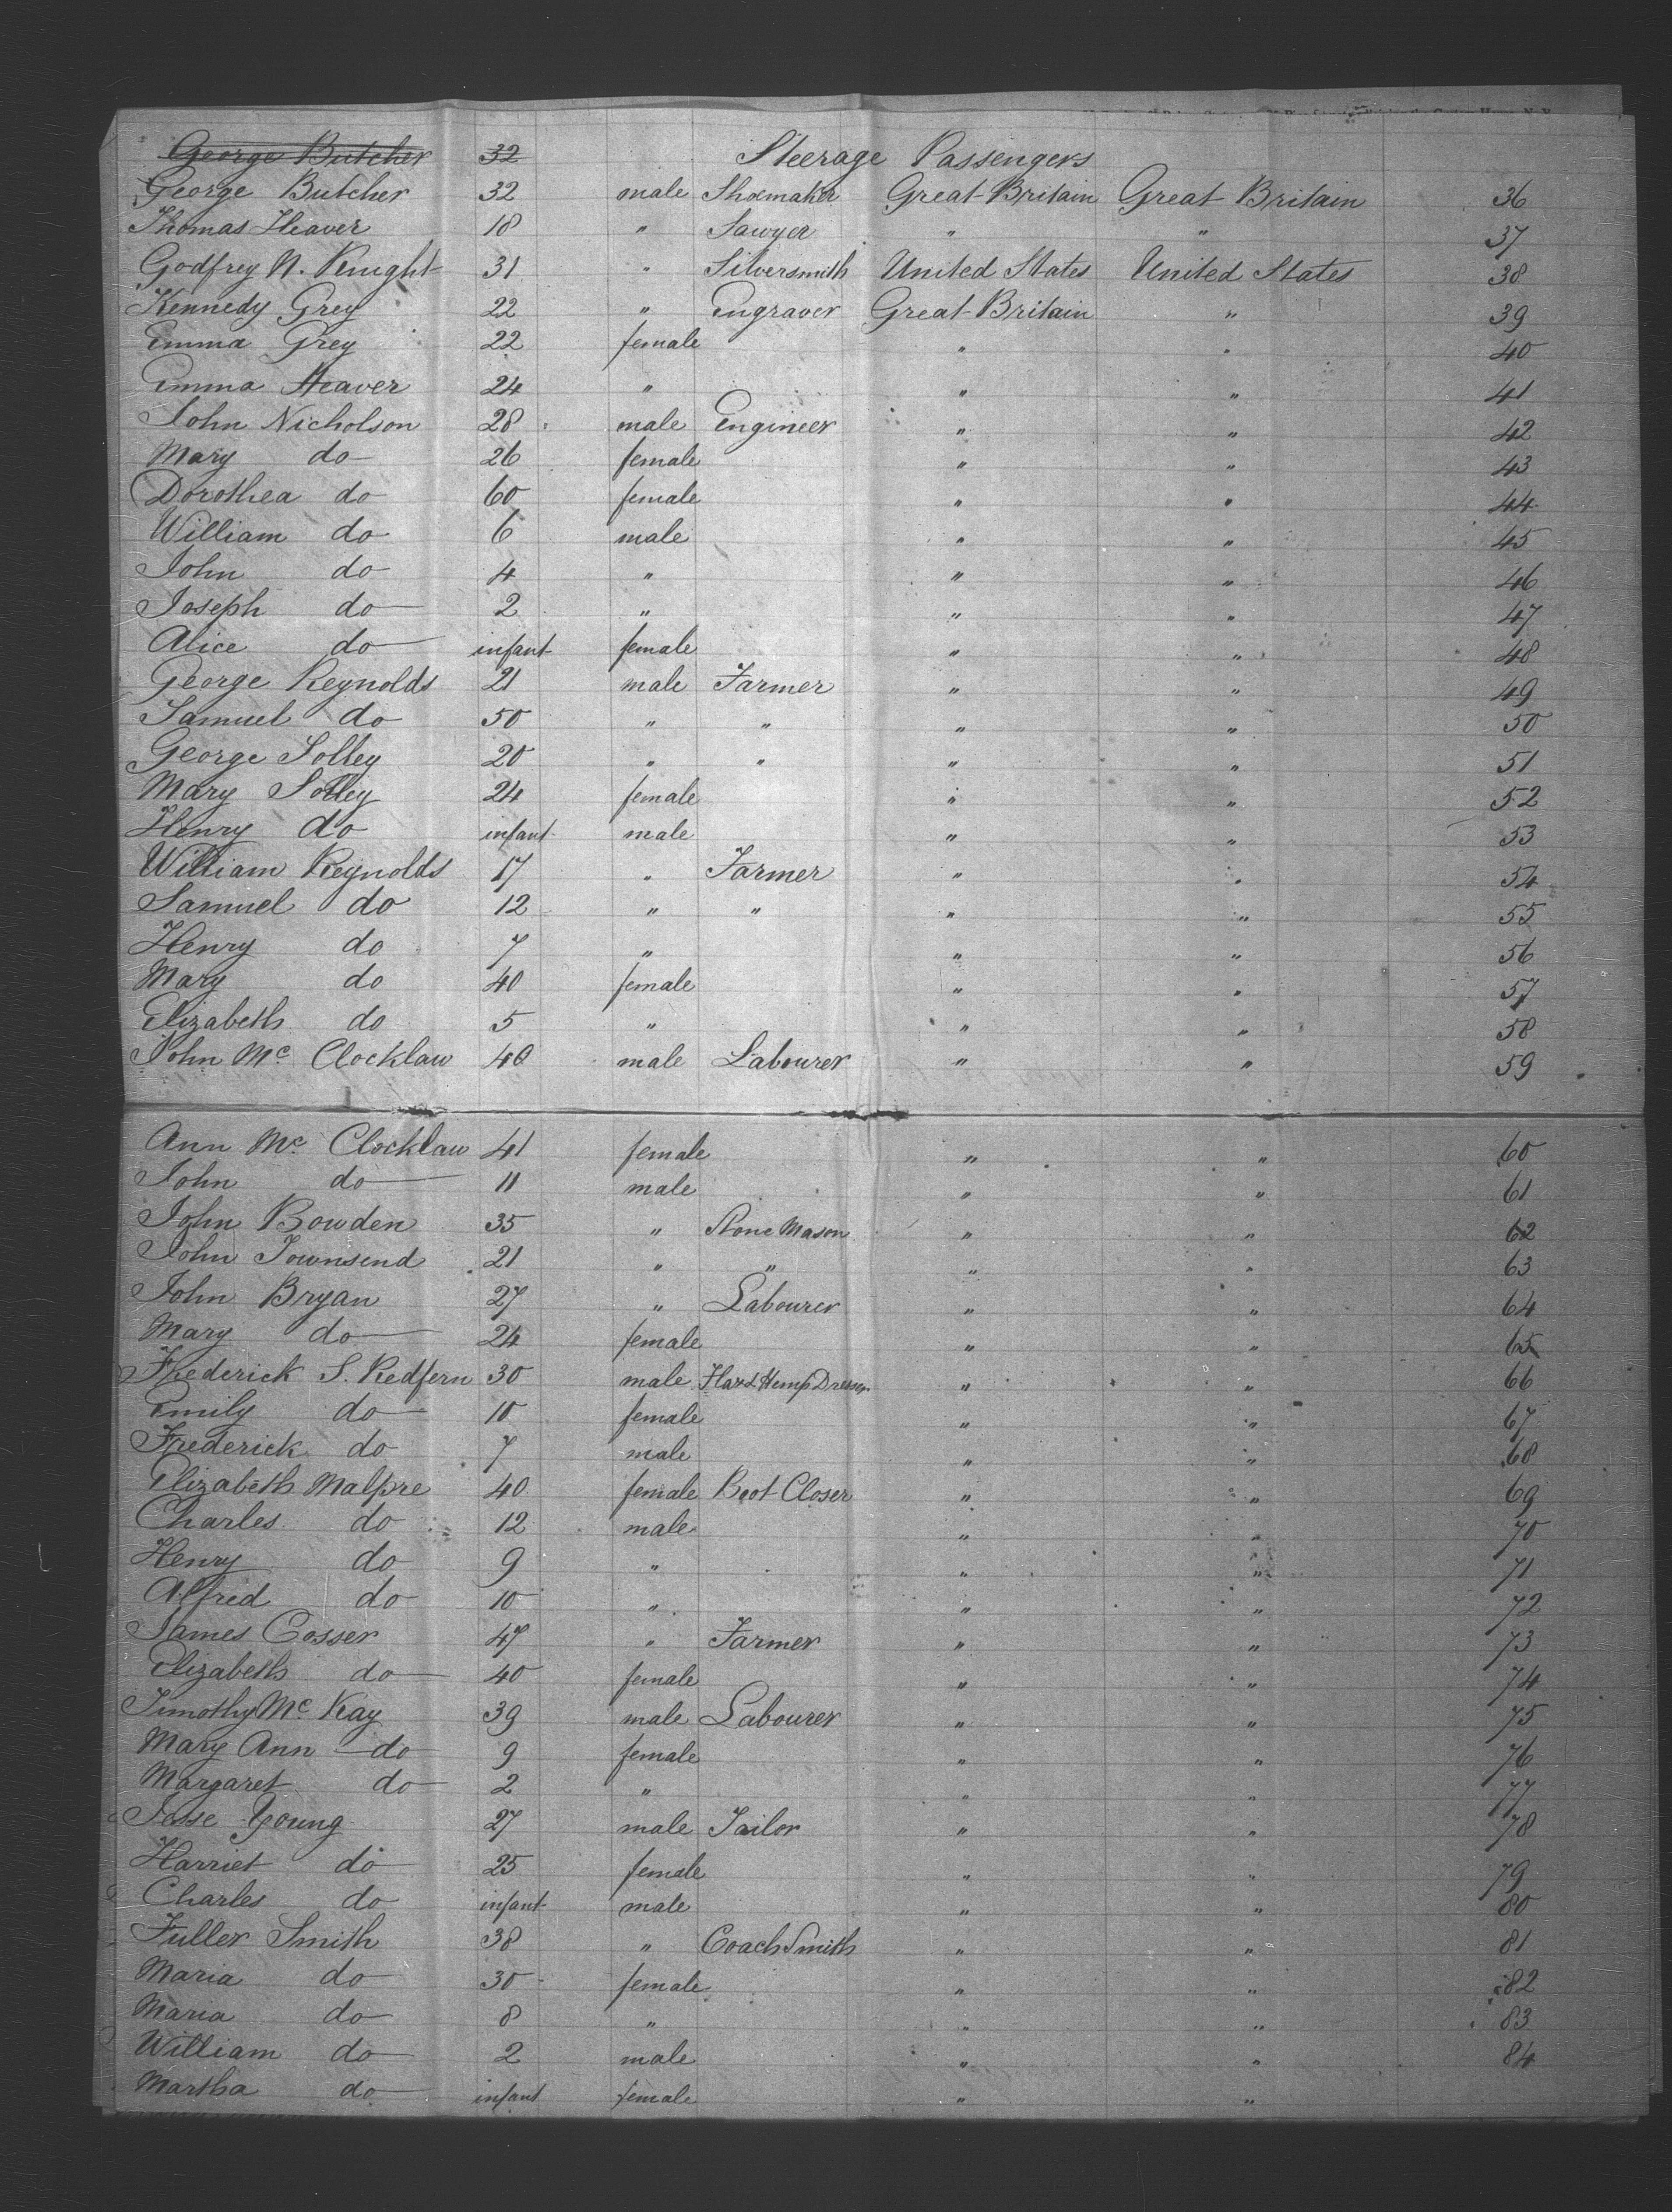 George Butcher 32 Steerage Passengers
George Butcher 32 male Shoemaker Great Britain Great Britain 36
Thomas Heaver 18 " Sawyer " " 37
Godfrey N. Knight 31 " Silversmith United States United States 38
Kennedy Grey 22 " Engraver Great Britain " 39
Emma Grey 22 female " " 40
Emma Heaver 24 " " " 41
John Nicholson 28 male Engineer " " 42
Mary do 26 female " " 43
Dorothea do 60 female " " 44
William do 6 male " " 45
John do 4 " " " 46
Joseph do 2 " " " 47
Alice do infant female " " 48
George Reynolds 21 male Farmer " " 49
Samuel do 50 " " " " 50
George Solley 20 " " " " 51
Mary Solley 24 female " " 52
Henry do infant male " " 53
William Reynolds 17 " Farmer " " 54
Samuel do 12 " " " " 55
Henry do 7 " " " 56
Mary do 40 female " " 57
Elizabeth do 5 " " " 58
John Mc Clocklaw 40 male Labourer " " 59
Ann Mc Clocklaw 41 female " " 60
John do 11 male " " 61
John Bowden 35 " Stone Mason " " 62
John Townsend 21 " " " " 63
John Bryan 27 " Labourer " " 64
Mary do 24 female " " 65
Frederick S. Redfern 30 male Flax & Hemp Dresser " " 66
Emily do 10 female " " 67
Frederick do 7 male " " 68
Elizabeth Malpre 40 female Boot Closer " " 69
Charles do 12 male " " 70
Henry do 9 " " " 71
Alfred do 10 " " " 72
James Cosser 47 " Farmer " " 73
Elizabeth do 40 female " " 74
Timothy Mc Kay 39 male Labourer " " 75
Mary Ann do 9 female " " 76
Margaret do 2 " " " 77
Jesse Young 27 male Tailor " " 78
Harriet do 25 female " " 79
Charles do infant male " " 80
Fuller Smith 38 " Coach Smith " " 81
Maria do 30 female " " 82
Maria do 8 " " " 83
William do 2 male " " 84
Martha do infant female " "